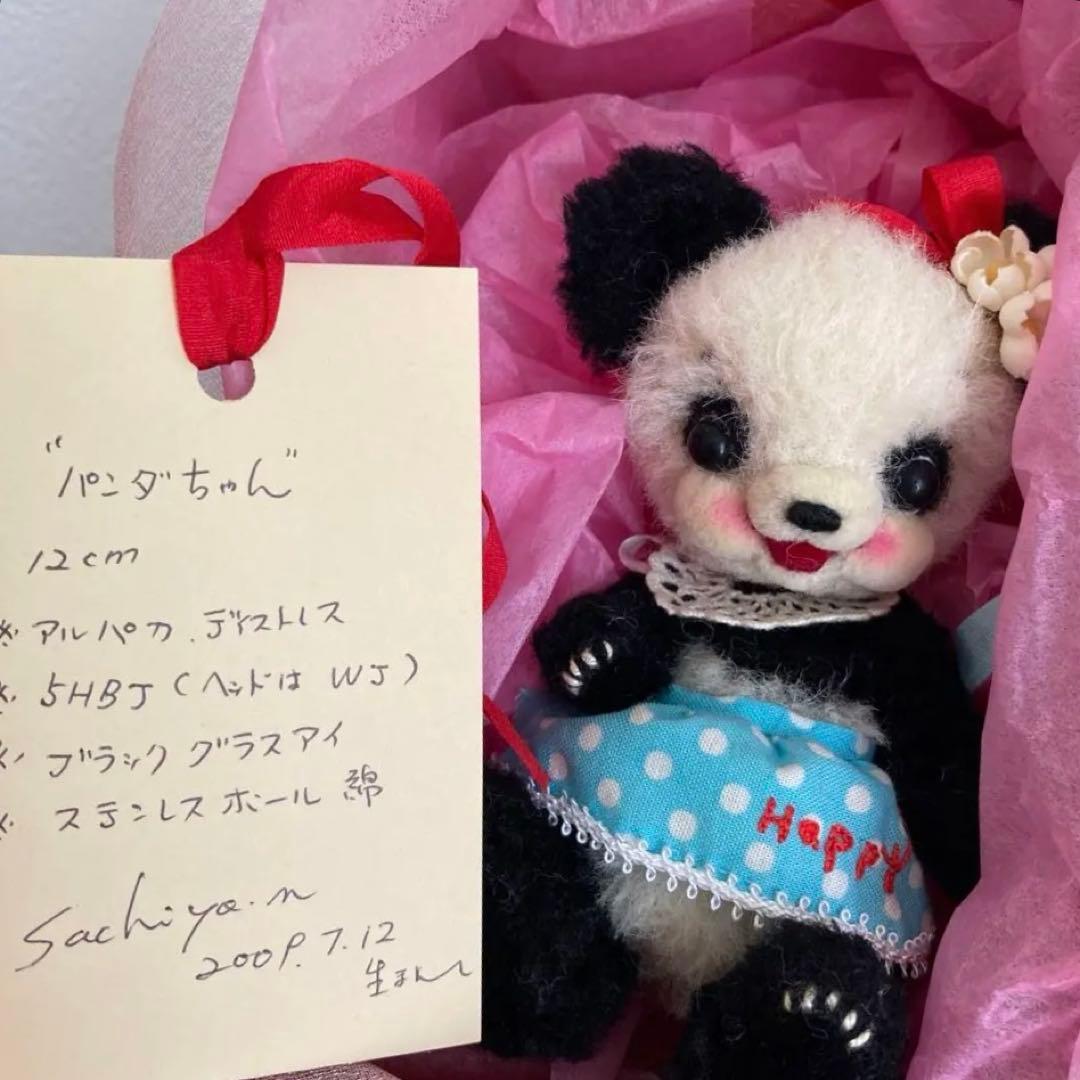 "パンダちゃん"
12cm
※ アルパカ．ディストレス
※ 5HBJ（ヘッドは WJ）
※ ブラック グラスアイ
※ ステンレス ボール 綿
Sachiyo.n
2009.7.12
生まれ
Happy